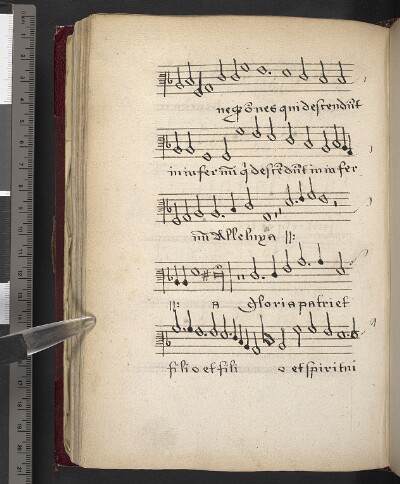 neqз oēs qui descendūt
in infernū qi descēdūt in infer
nū Alleluya ||:
||: a gloria patri et
filio et fili o et spiritui